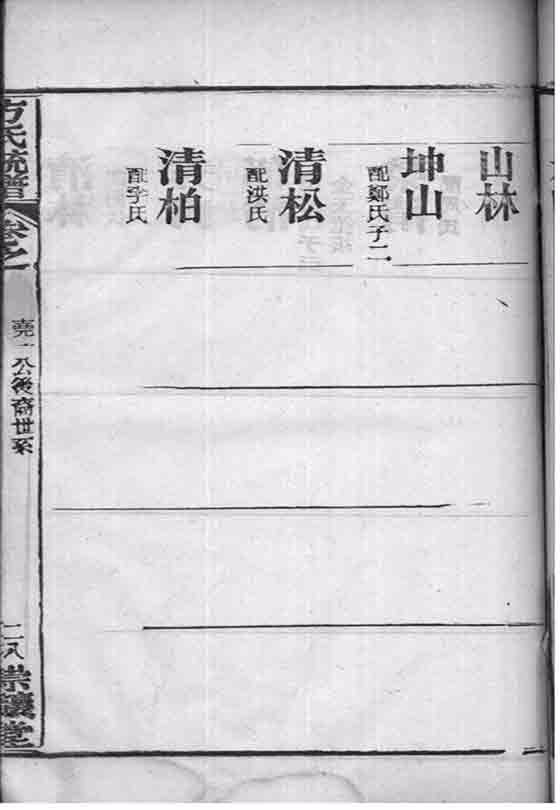 山林
坤山
配鄭氏子二
清松
配洪氏
清柏
配李氏
方氏統譜
卷之一
堯一公後裔世系
二八
崇讓堂